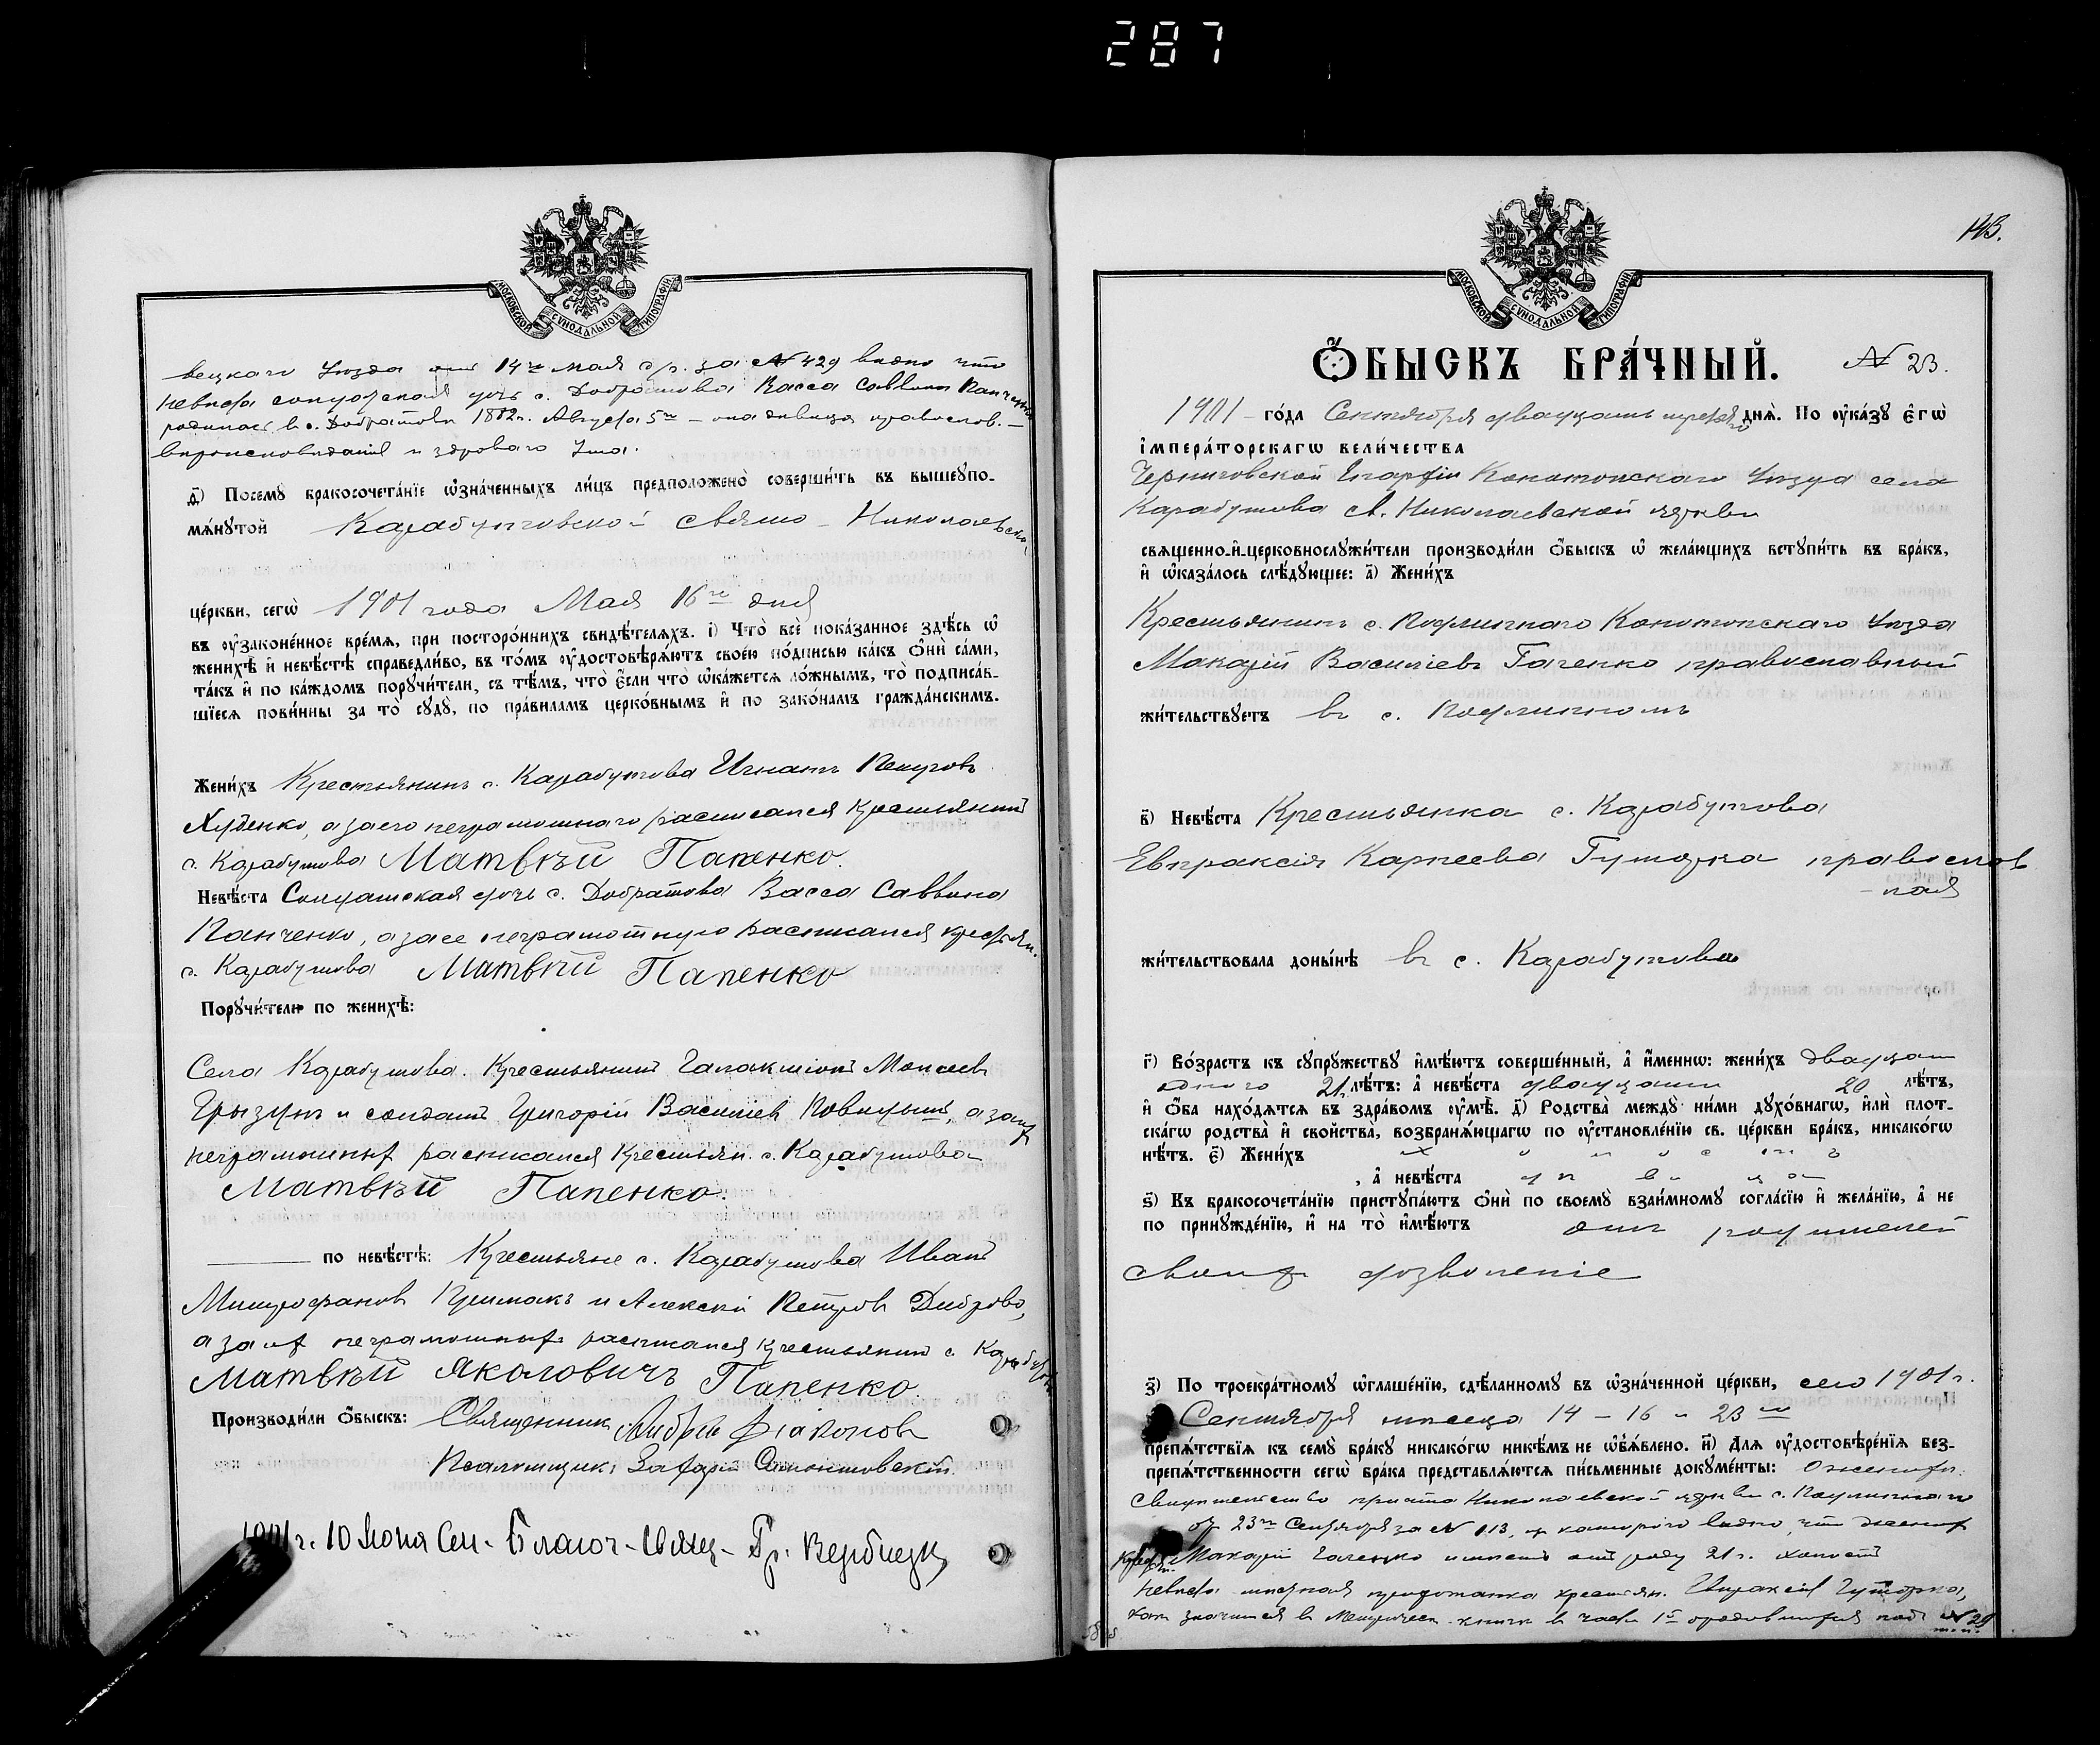 287
МОСКОВСКОЙ СУНОДАЛЬНОЙ ТИПОГРАФІИ
вецкаго Уѣзда отъ 14го мая с/г. за № 429 видно что
невѣста солдатская дочь с. Добратова Васса Саввина Панченко
родилась в с. Добратовѣ 1882 г. Августа 5го – она дѣвица православ. –
вѣроисповѣданія и здороваго Ума.
д҃) Посемꙋ бракосочета́нїе ѡ҆зна́ченныхъ ли́цъ предположено̀ соверши́ть въ вышеꙋпо-
мѧ́нꙋтой Карабутовской Свято - Николаевской
це́ркви, сегѡ̀ 1901 года Мая 16го дня
въ ᲂу҆зако́ненное вре́мѧ, при посторо́ннихъ свидѣ́телѧхъ. і҃) Что̀ всѐ пока́занное здѣ́сь ѡ҆
женихѣ̀ и҆ невѣ́стѣ справедли́во, въ то́мъ ᲂу҆достовѣрѧ́ютъ свое́ю по́дписью ка́къ ѻ҆нѝ са́ми,
та́къ и҆ по ка́ждомъ порꙋчи́тели, съ тѣ́мъ, что̀ є҆́сли что̀ ѡ҆ка́жетсѧ ло́жнымъ, то̀ подписа́в-
шїесѧ пови́нны за то̀ сꙋдꙋ̀, по пра́виламъ церко́внымъ и҆ по зако́намъ гражда́нскимъ.
Жени́хъ Крестьянинъ с. Карабутова Игнатъ Петровъ
Худенко, а за его неграмотнаго расписался крестьянинъ
с. Карабутова Матвѣй Папенко.
Невѣ́ста Солдатская дочь с. Добратова Васса Саввина
Панченко, а за ее неграмотную расписался крестьян.
с. Карабутова Матвѣй Папенко
Порꙋчи́тели по женихѣ̀:
Села Карабутова. Крестьянинъ Галактіонъ Моисеевъ
Грызунъ и солдатъ Григорій Васильевъ, а за их
неграмотныхъ расписался Крестьян. с. Карабутова
Матвѣй Папенко.
по невѣ́стѣ: Крестьяне с. Карабутова Иванъ
Митрофановъ Примакъ и Алексѣй Петровъ Диброво,
а за их неграмотныхъ расписался крестьянинъ с. Карабутова
Матвѣй Яколовичъ Папенко.
Производи́ли ѻ҆́быскъ: Священникъ Діаконов
Псаломщикъ Захарій
1901 г. 10 Іюня Сен. Благоч. Свящ. Гр. Вербицкій
143.
МОСКОВСКОЙ СУНОДАЛЬНОЙ ТИПОГРАФІИ
Ѻ҆́БЫСКЪ БРА́ЧНЫЙ. № 23.
1901 го́да Сентября двадцать третьяго днѧ̀. По ᲂу҆ка́зꙋ є҆гѡ̀
і҆мпера́торскагѡ вели́чества
Черниговской Епархіи Конотопскаго Уѣзда села
Карабутова св. Николаевской церкви
свѧще́нно-и҆-церковнослꙋжи́тели производи́ли ѻ҆́быскъ ѡ҆ жела́ющихъ встꙋпи́ть въ бра́къ,
и҆ ѡ҆каза́лось слѣ́дꙋющее: а҃) Жени́хъ
Крестьянинъ с. Подлипнаго Конотопскаго Уѣзда
Макарій Васильевъ Гаченко православный
жи́тельствꙋетъ в с. Подлипномъ
в҃) Невѣ́ста Крестьянка с. Карабутова
Евпраксія Карпеева Гуторка православ
– ная
жи́тельствовала доны́нѣ в с. Карабутовѣ
г҃) Во́зрастъ къ сꙋпрꙋ́жествꙋ и҆мѣ́ютъ соверше́нный, а҆ и҆́меннѡ: жени́хъ двадцати
одного 21 лѣ́тъ: а҆ невѣ́ста двадцати 20 лѣ́тъ,
и҆ ѻ҆́ба нахо́дѧтсѧ въ здра́вомъ ᲂу҆мѣ̀. д҃) Родства̀ междꙋ̀ ни́ми дꙋхо́внагѡ, и҆лѝ пло́т-
скагѡ родства̀ и҆ свойства̀, возбранѧ́ющагѡ по ᲂу҆становле́нїю св. це́ркви бра́къ, никако́гѡ
нѣ́тъ. є҃) Жени́хъ холостъ
, а҆ невѣ́ста дѣвица
ѕ҃) Къ бракосочета́нїю пристꙋпа́ютъ ѻ҆нѝ по своемꙋ̀ взаи́мномꙋ согла́сїю и҆ жела́нїю, а҆ не
по принꙋжде́нїю, и҆ на то̀ и҆мѣ́ютъ отъ родителей
своихъ дозволеніе
з҃) По троекра́тномꙋ ѡ҆глаше́нїю, сдѣ́ланномꙋ въ ѡ҆зна́ченной це́ркви, сего 1901 г.
Сентября мѣсяца 14 – 16 и 23го
препѧ́тствїѧ къ семꙋ̀ бра́кꙋ никако́гѡ никѣ́мъ не ѡ҆б̾ѧ́влено. и҃) Длѧ ᲂу҆достовѣре́нїѧ без-
препѧ́тственности сегѡ̀ бра́ка представлѧ́ютсѧ пи́сьменные докꙋме́нты: О женихѣ
свидетельство причта Николаевской церкви с. Подлипнаго
от 23го Сентября за № 113, из котораго видно, что женихъ
Крест. Макарій Гаченко имѣетъ отъ роду 21 г. холостъ
невѣста мѣстная прихожанка крестьян. Евпраксія Гуторка,
как значится в Метрическ. книгѣ в части 1й о родившихся под № 29